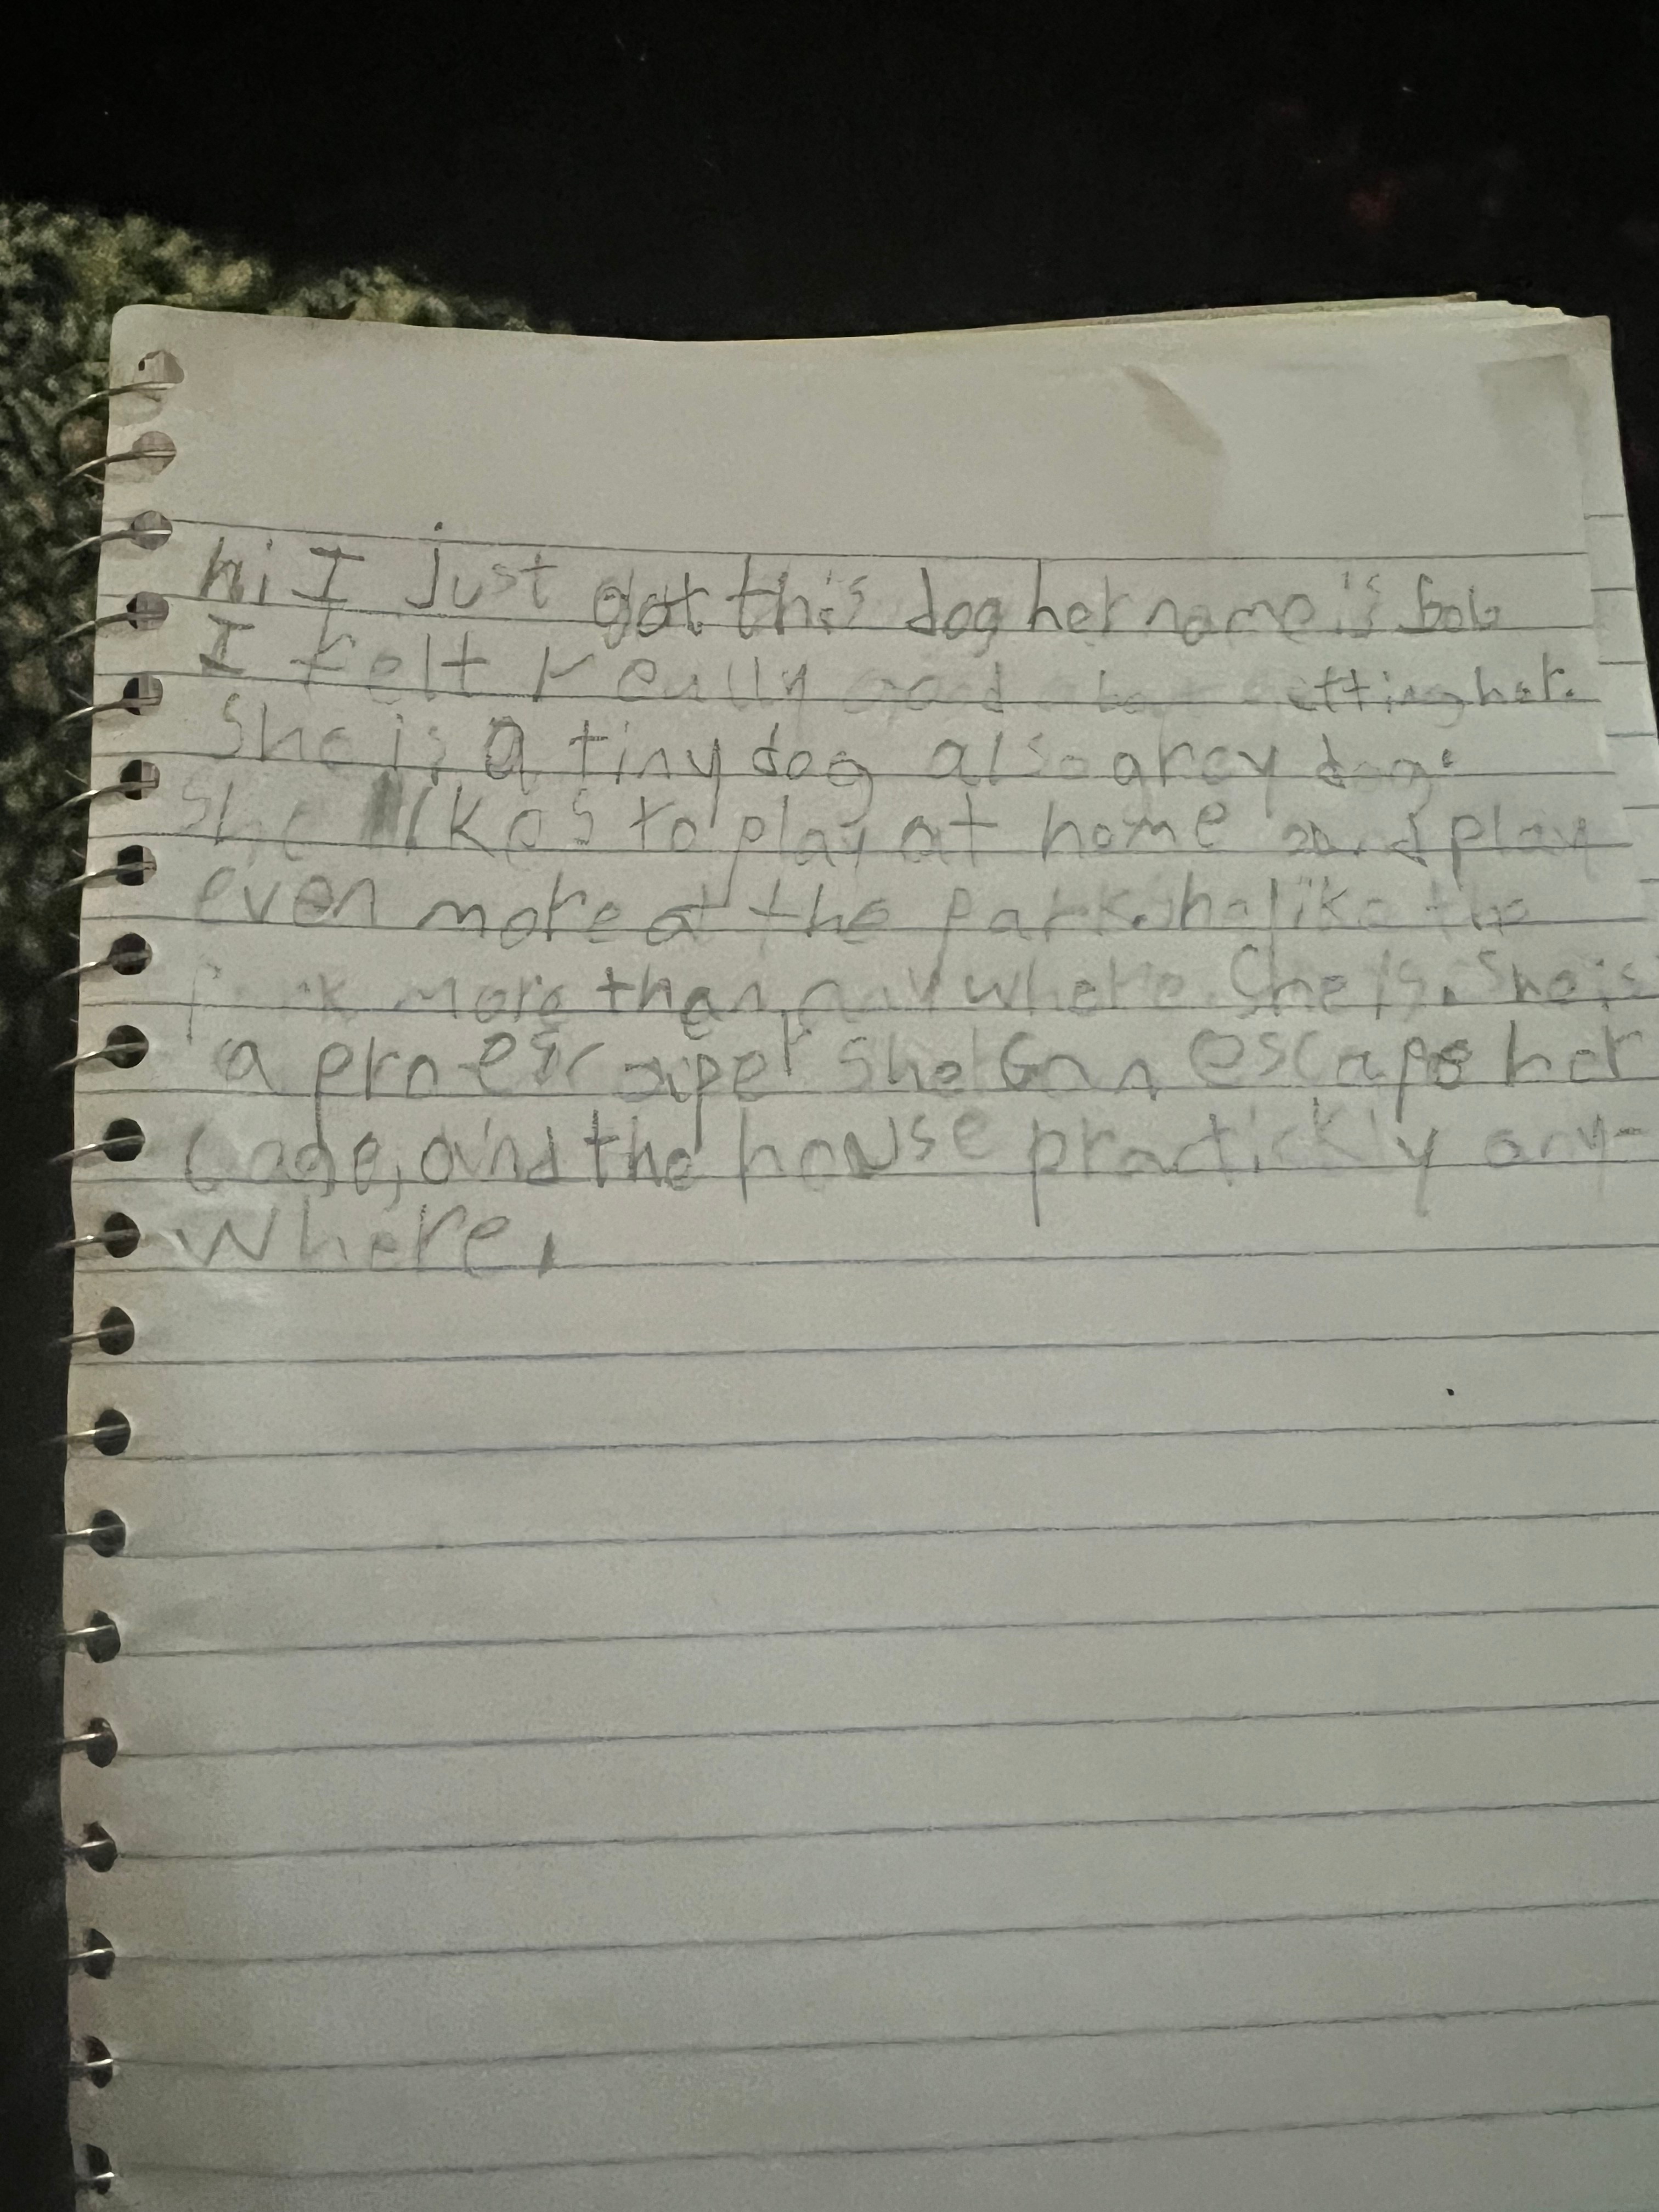 hi I just got this dog her name is Bob
I felt really good getting her.
She is a tiny dog also grey dog.
She likes to play at home and play
even more at the park. she like the
park more than anywhere. She is. She is
a pro escaper she can escape her
cage, and the house practickly any-
where.